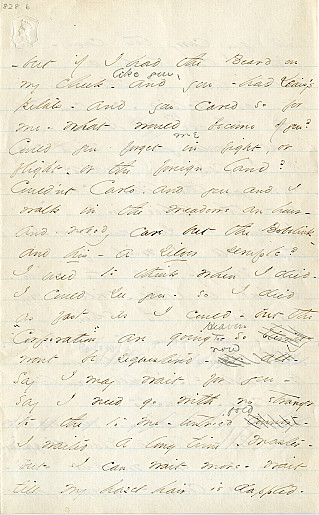 828 b
-but if I had the Beard on
like you
my cheek - and you - had Daisy's
petals - and you cared so for
me - what would become of you?
me
Could you forget in fight, or
flight - or the foreign land?
Could'nt Carlo, and you and I
walk in the meadows an hour -
and nobody care but the Bobolink -
and his - a silver scruple?
I used to think when I died -
I could see you - so I died
as fast as I could - but the
Heaven
"Corporation" are going so
now
wont be sequestered - at all -
Say I may wait for you -
Say I need go with no stranger
fold
to the to me - untried
I waited a long time - Master -
but I can wait more - wait
till my hazel hair is dappled -